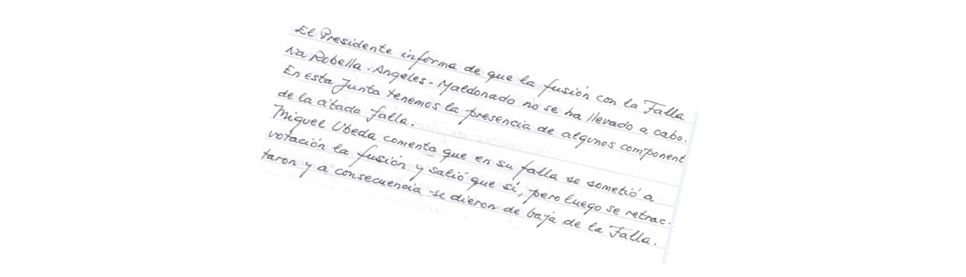 El Presidente informa de que la fusión con la Falla
Na Robella-Angeles-Maldonado no se ha llevado a cabo.
En esta Junta tenemos la presencia de algunos component
de la citada falla.
Miguel Ubeda comenta que en su falla se sometió a
votación la fusión y salió que sí, pero luego se retrac-
taron y a consecuencia se dieron de baja de la Falla.